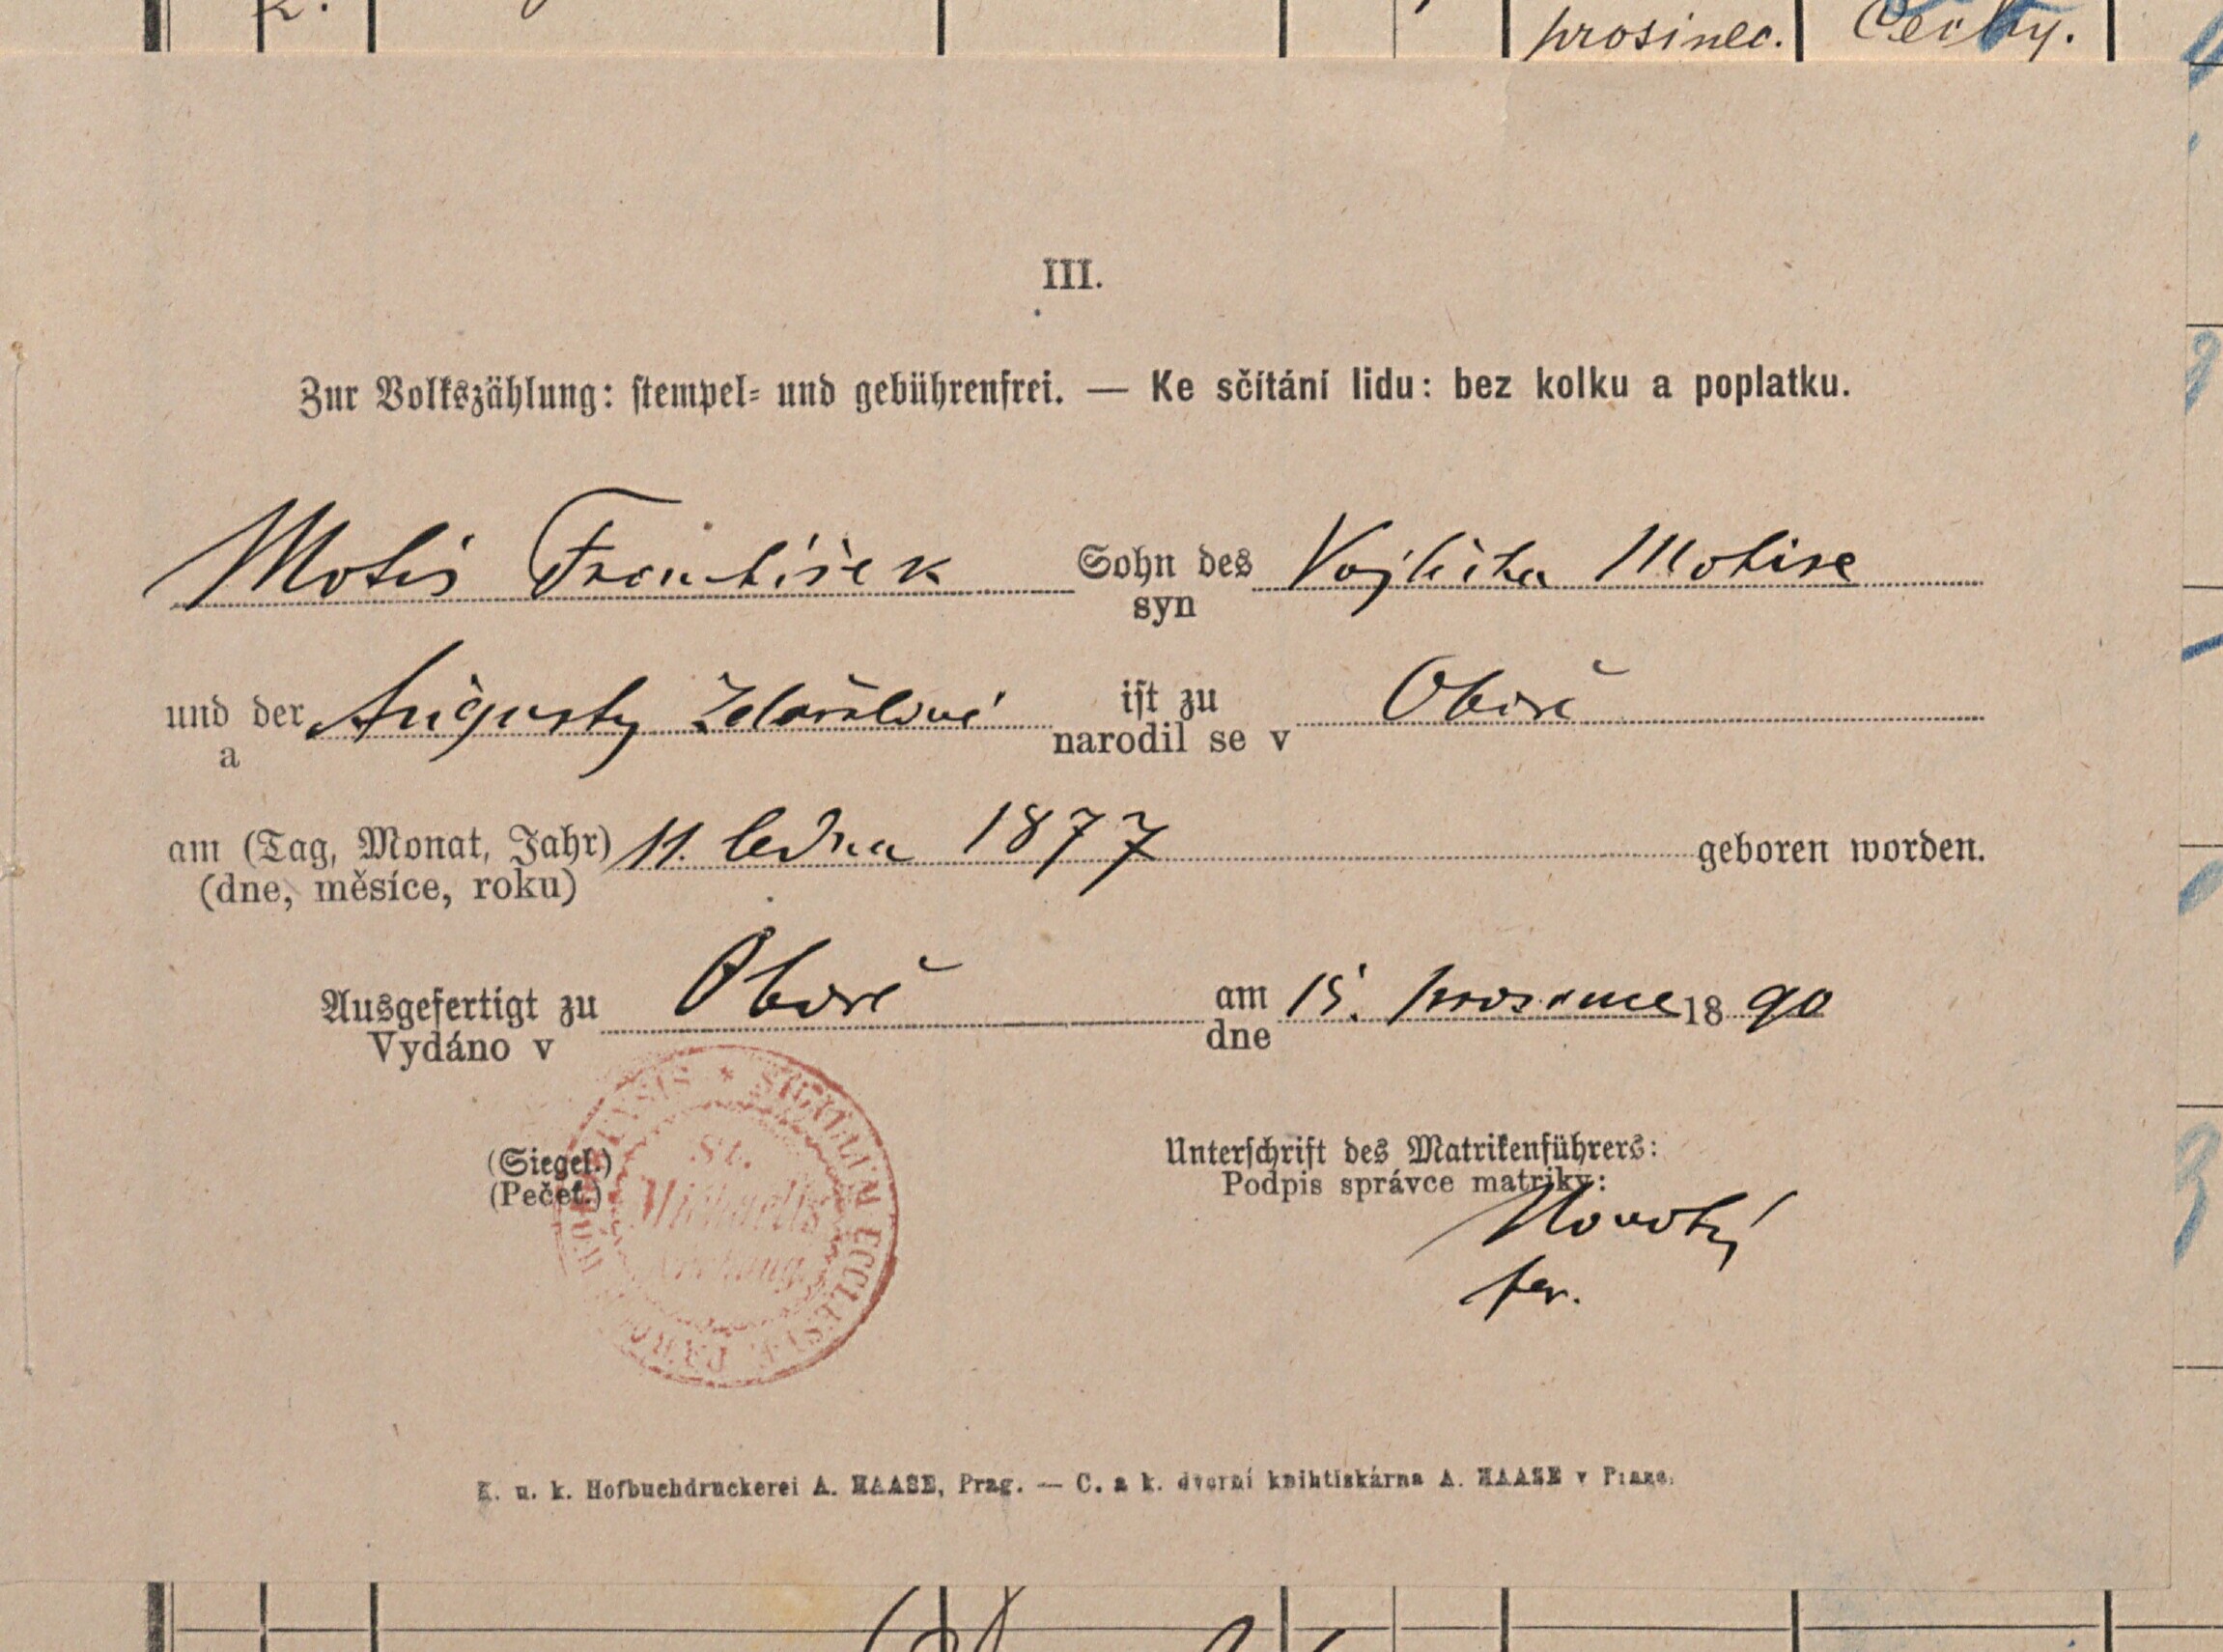 prosinec. Čechy.
III.
Zur Volkszählung: stempel= und gebührenfrei. — Ke sčítání lidu: bez kolku a poplatku.
Motis František Sohn des Vojtěcha Motise
syn
und der Augusty ist zu Oboře
a narodil se v
am (Tag, Monat, Jahr) 11. ledna 1877 geboren worden.
(dne, měsíce, roku)
Ausgefertigt zu Oboře am 15. prosince 1890
Vydáno v dne
(Siegel.) Unterschrift des Matrikenführers:
(Pečeť.) Podpis správce matriky:
Novotný
far.
SIGILLUM ECCLESIAE
St.
Michaelis
K. u. k. Hofbuchdruckerei A. HAASE, Prag. — C. a k. dvorní knihtiskárna A. HAASE v Praze.